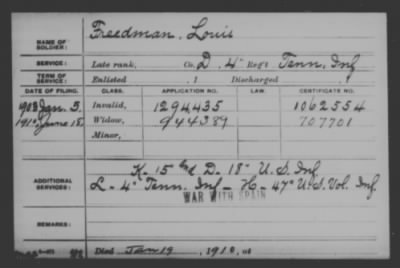 NAME OF SOLDIER: Freedman, Louis
SERVICE: Late rank, Co. D, 4" Reg't Tenn. Inf
TERM OF SERVICE: Enlisted , 1 Discharged , 1
DATE OF FILING. CLASS. APPLICATION NO. LAW. CERTIFICATE NO.
1903 Jan. 5. Invalid, 1294435 1062554
1910 June 18. Widow, 944389 707701
Minor,
K - 15" and D - 18" U.S. Inf
ADDITIONAL SERVICES: L - 4" Tenn. Inf - H - 47" U.S. Vol. Inf.
WAR WITH SPAIN
REMARKS:
Died Jan 19, 1910, at